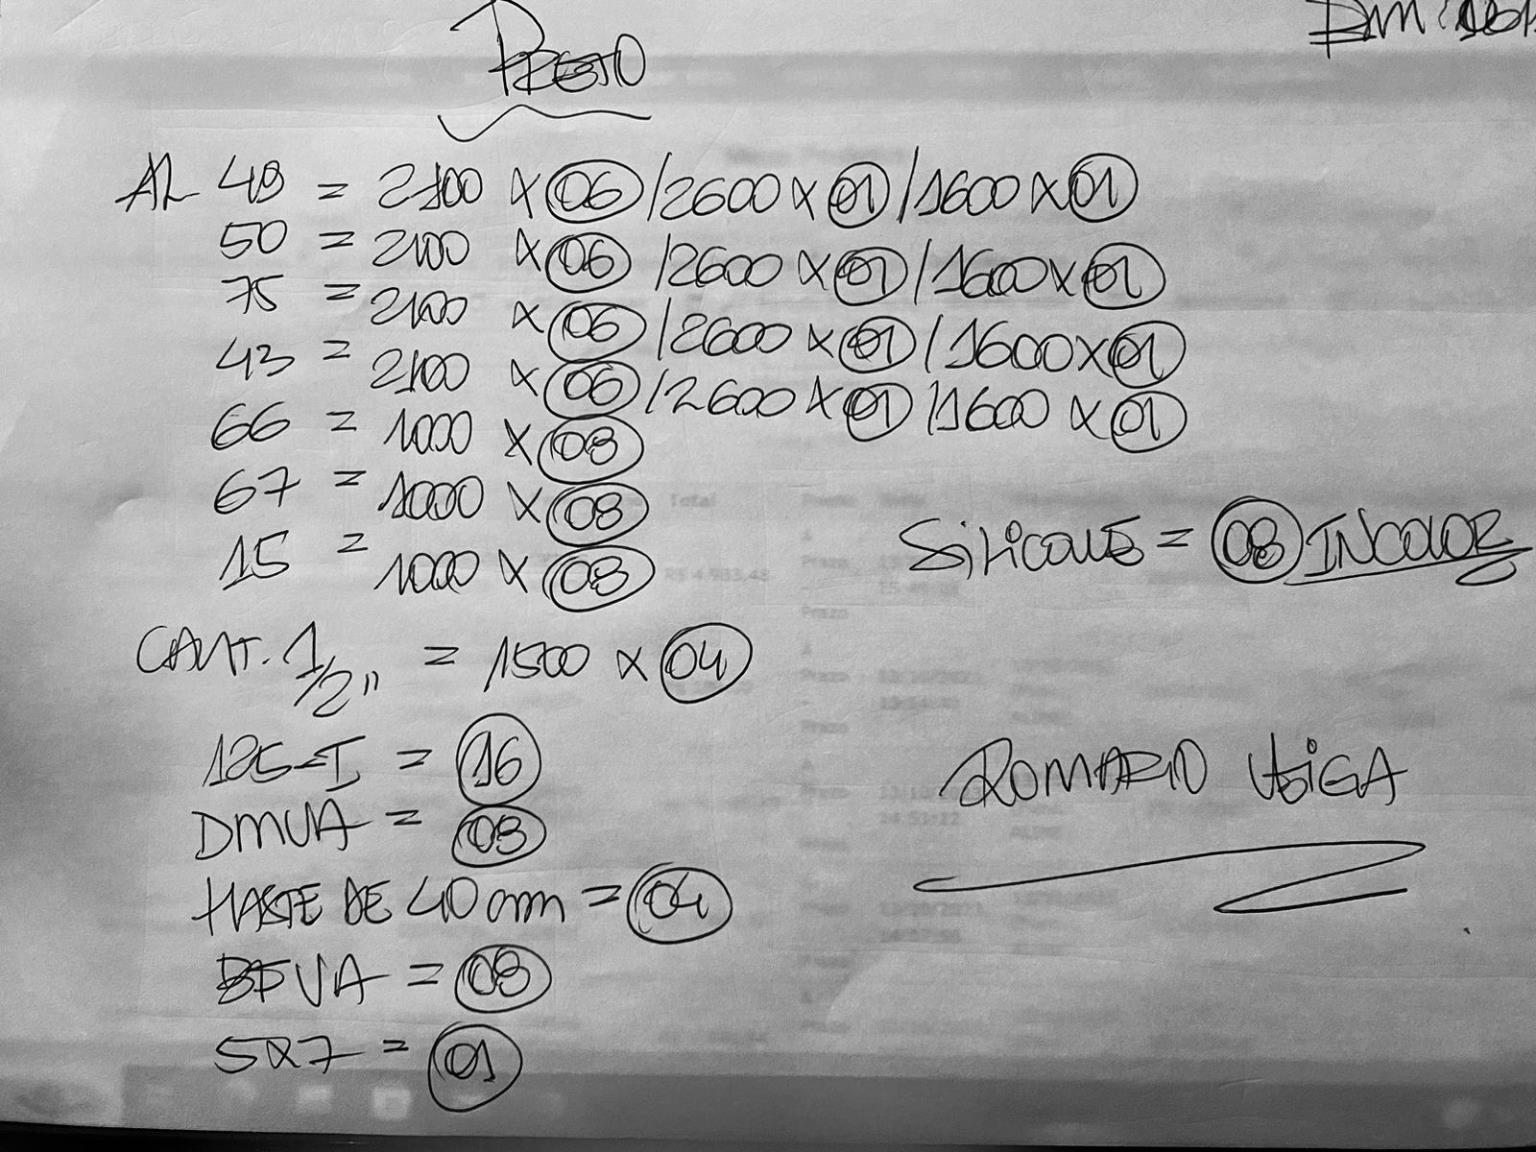 PRETO
AL 48 = 2100 x 06 / 2600 x 01 / 1600 x 01
50 = 2100 x 06 / 2600 x 01 / 1600 x 01
75 = 2100 x 06 / 2600 x 01 / 1600 x 01
43 = 2100 x 06 / 2600 x 01 / 1600 x 01
66 = 1000 x 08
67 = 1000 x 08
15 = 1000 x 08
SILICONE = 08 INCOLOR
CANT. 1/2" = 1500 x 04
125-I = 16
DMUA = 08
HASTE DE 40 cm = 04
UA = 08
5x7 = 01
ROMARIO